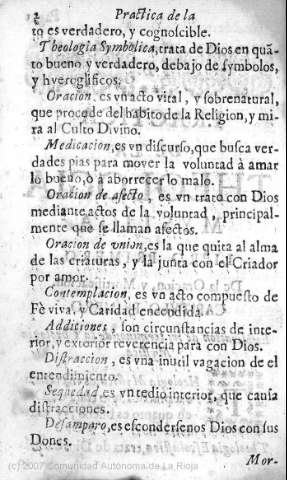 2 Practica de la
to es verdadero, y cognoscible.
Theologia Symbolica, trata de Dios en quã-
to bueno y verdadero, debajo de symbolos,
y hyeroglificos.
Oracion, es vn acto vital, y sobrenatural,
que procede del habito de la Religion, y mi-
ra al Culto Divino.
Medicacion, es vn discurso, que busca ver-
dades pias para mover la voluntad à amar
lo bueno, ò a aborrecer lo malo.
Oracion de afecto, es vn trato con Dios
mediante actos de la voluntad, principal-
mente que se llaman afectos.
Oracion de vnion, es la que quita al alma
de las criaturas, y la junta con el Criador
por amor.
Contemplacion, es vn acto compuesto de
Fè viva, y Caridad encendida.
Addiciones, son circunstancias de inte-
rior, y exterior reverencia para con Dios.
Distraccion, es vna inutil vagacion de el
entendimiento.
Sequedad, es vn tedio interior, que causa
distracciones.
Desamparo, es escondersenos Dios con sus
Dones.
Mor-
(c) 2007 Comunidad Autónoma de La Rioja